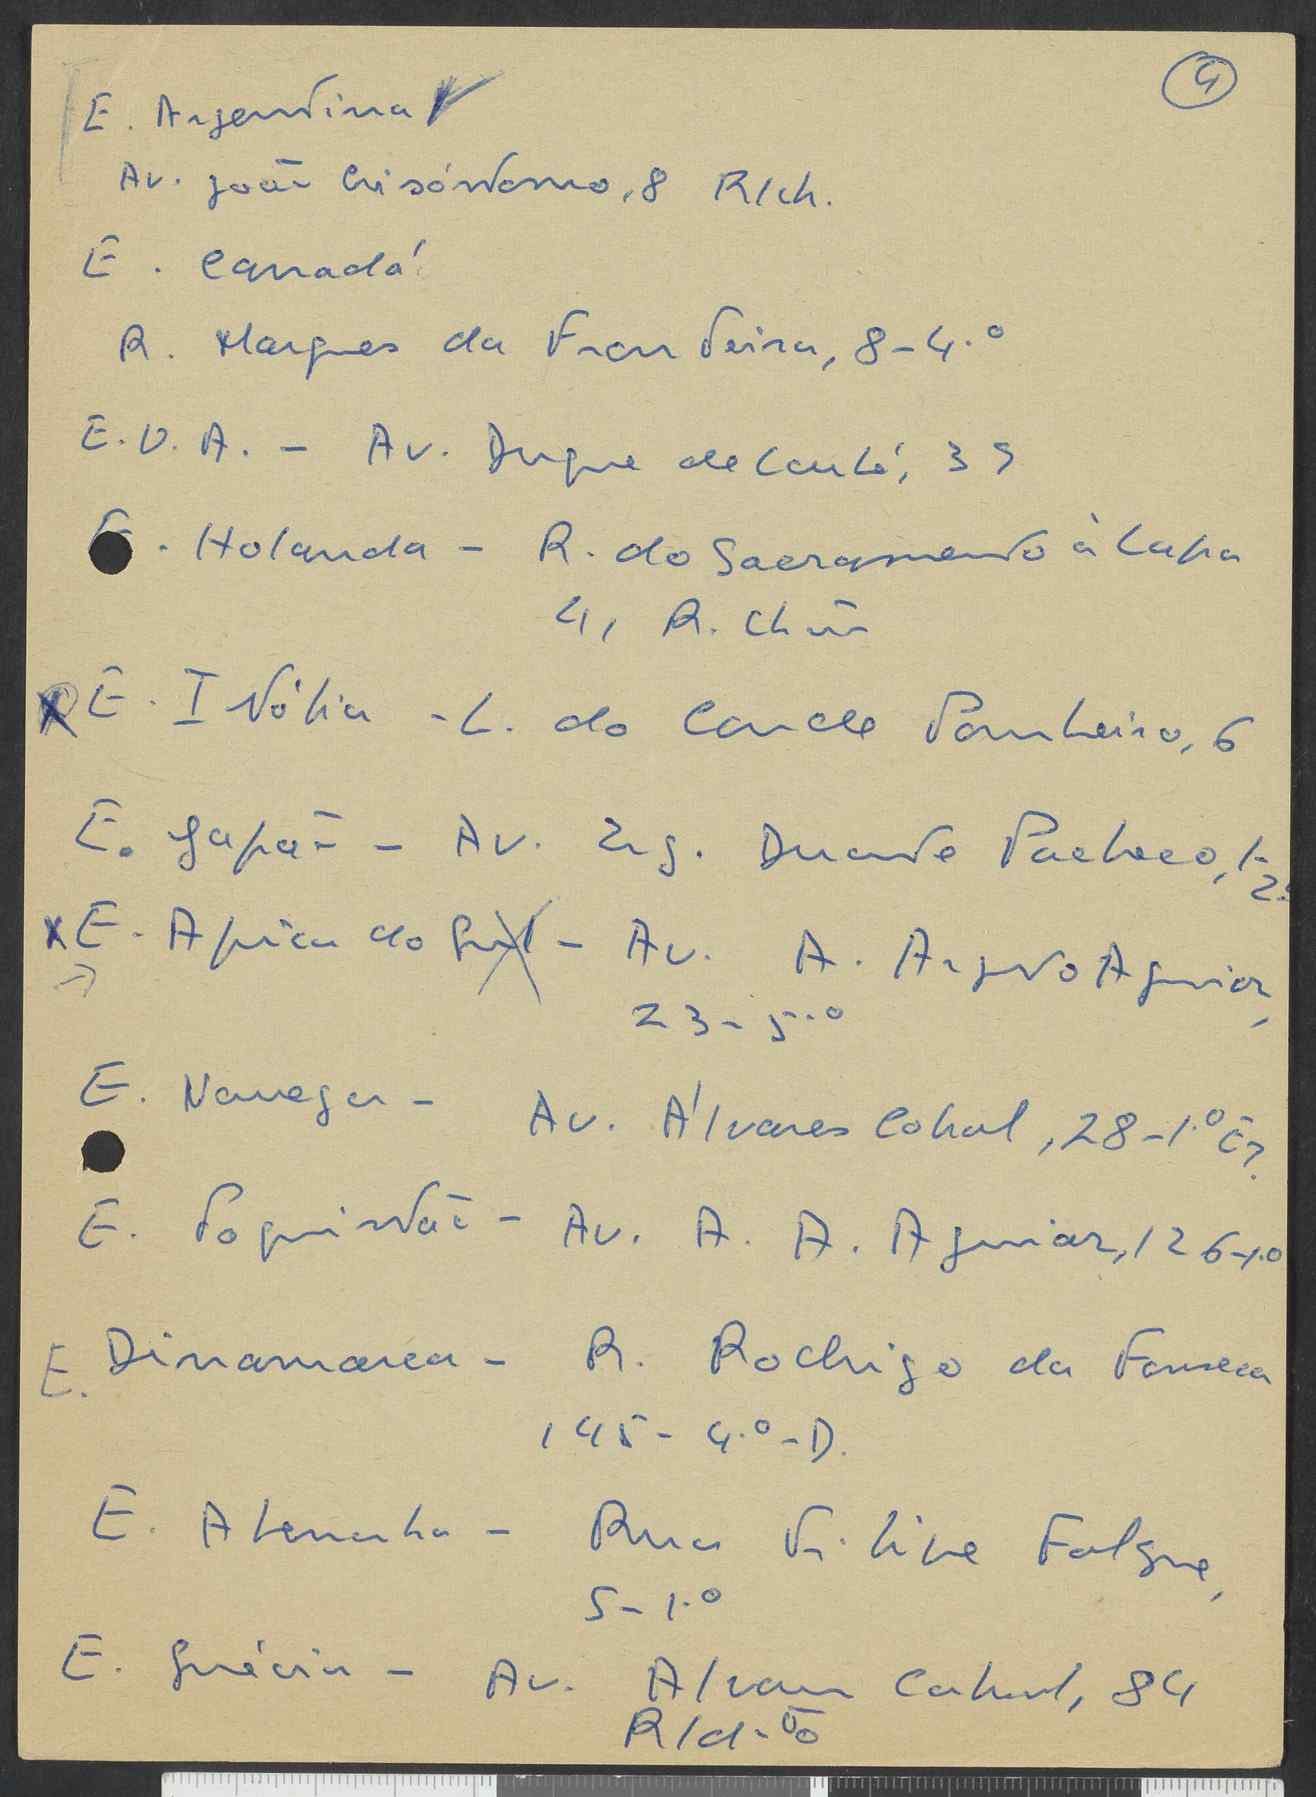 4
E. Argentina
Av. João Crisóstomo, 8 R/ch.
E. Canadá
R. Marques da Fronteira, 8-4.º
E.U.A. - Av. Duque de Loulé, 39
E. Holanda - R. do Sacramento à Lapa
4, R. Chão
E. Itália - L. do Conde Pombeiro, 6
E. Japão - Av. Eng. Duarte Pacheco, 1-
2.º
E. Africa do Sul - Av. A. Augusto Aguiar,
23-5.º
E. Noruega - Av. Álvares Cabral, 28-1.º E?
E. Paquistão - Av. A. A. Aguiar, 126-1.º
E. Dinamarca - R. Rodrigo da Fonseca
145-4.º-D.
E. Alemanha - Rua Filipe Folque,
5-1.º
E. Grécia - Av. Alvares Cabral, 84